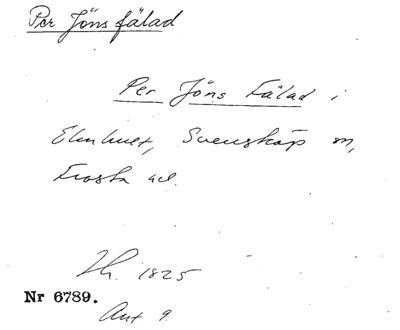 Per Jöns fälad
Per Jöns Fälad i
Elmhult, Svensköp sn,
Frosta hd.
Th. 1825
Nr 6789.
Ant 9.